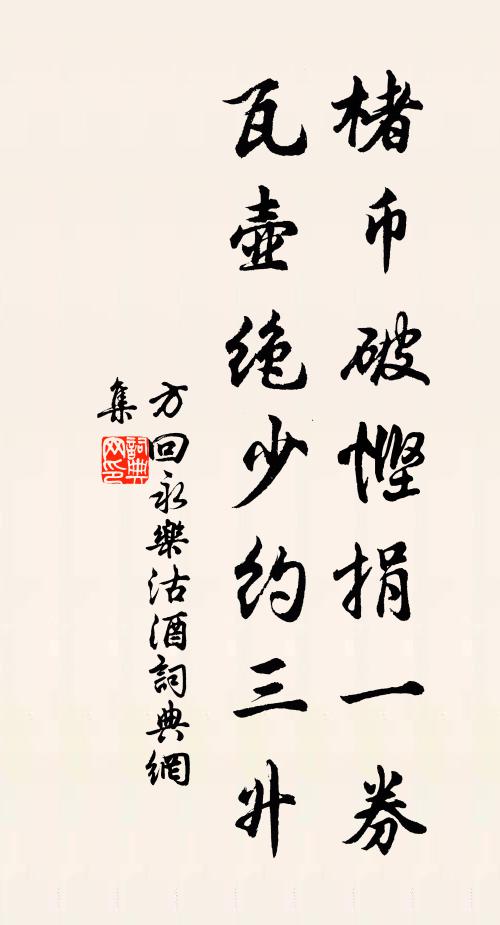 楮币破悭捐一券
瓦壺绝少约三升
方回永樂沽酒詞典網
集
詞典网印